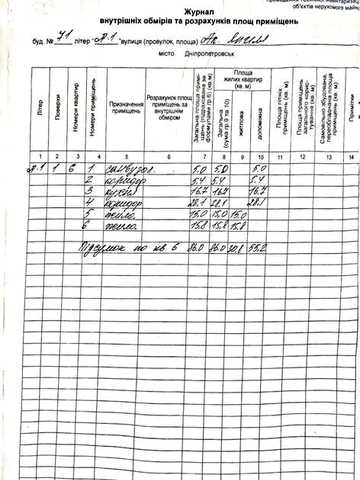 об'єктів нерухомого майна
Журнал
внутрішніх обмірів та розрахунків площ приміщень
буд. № 71 літер А-1 вулиця (провулок, площа)
місто Дніпропетровськ
Літер
Поверхи
Номери квартири
Номери приміщень
Призначення приміщень
Розрахунок площ приміщень за внутрішнім обміром
Загальна площа приміщень (підрахована за форм.) (гама гр.8) (кв. м)
Площа жилих квартир (кв. м)
Загальна (сума гр. 9 та 10)
житлова
допоміжна
Площа літніх приміщень (кв. м)
Площа приміщень загального користування (кв. м)
Самовільно збудована, переобладнана площа приміщень (кв. м)
Примітки
1 2 3 4 5 6 7 8 9 10 11 12 13 14
А-1 1 6 1 санвузол 5.0 5.0 5.0
2 коридор 5.4 5.4 5.4
3 кухня 16.7 16.7 16.7
4 коридор 28.1 28.1 28.1
5 житло 15.0 15.0 15.0
6 житло 15.8 15.8 15.8
Підсумок по кв 6 86.0 86.0 30.8 55.2